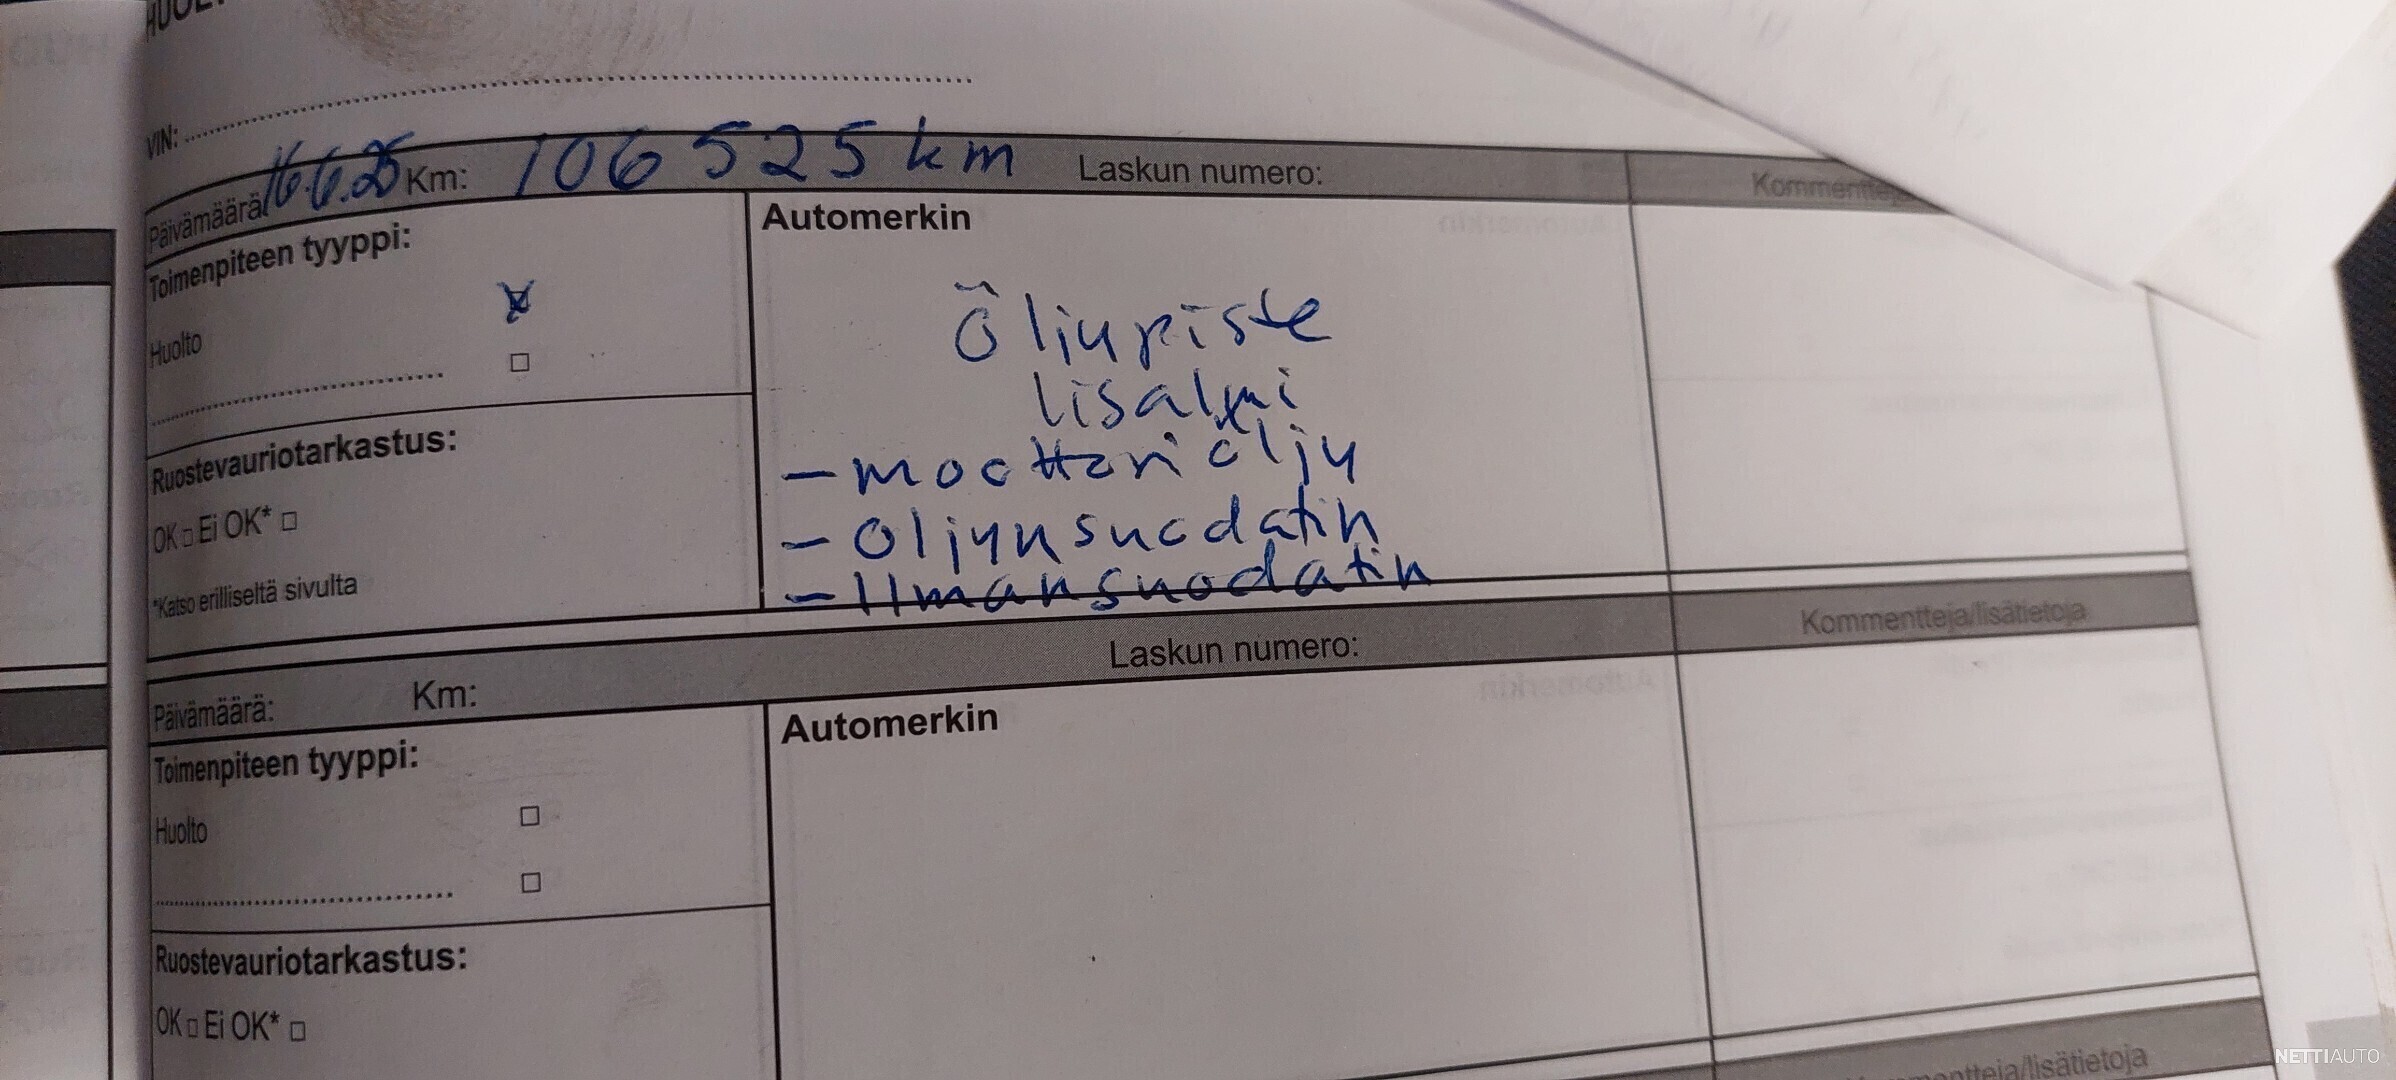 VIN:
Päivämäärä 16.6.25 Km: 106 525 km Laskun numero:
Toimenpiteen tyyppi:
Automerkin
Huolto
Öljypiste
Iisalmi
- moottoriöljy
Ruostevauriotarkastus:
- öljynsuodatin
OK □ Ei OK* □
- Ilmansuodatin
*Katso erilliseltä sivulta
Päivämäärä: Km: Laskun numero: Kommentteja/lisätietoja
Toimenpiteen tyyppi:
Automerkin
Huolto
Ruostevauriotarkastus:
OK □ Ei OK* □
Kommentteja/lisätietoja
NETTIAUTO